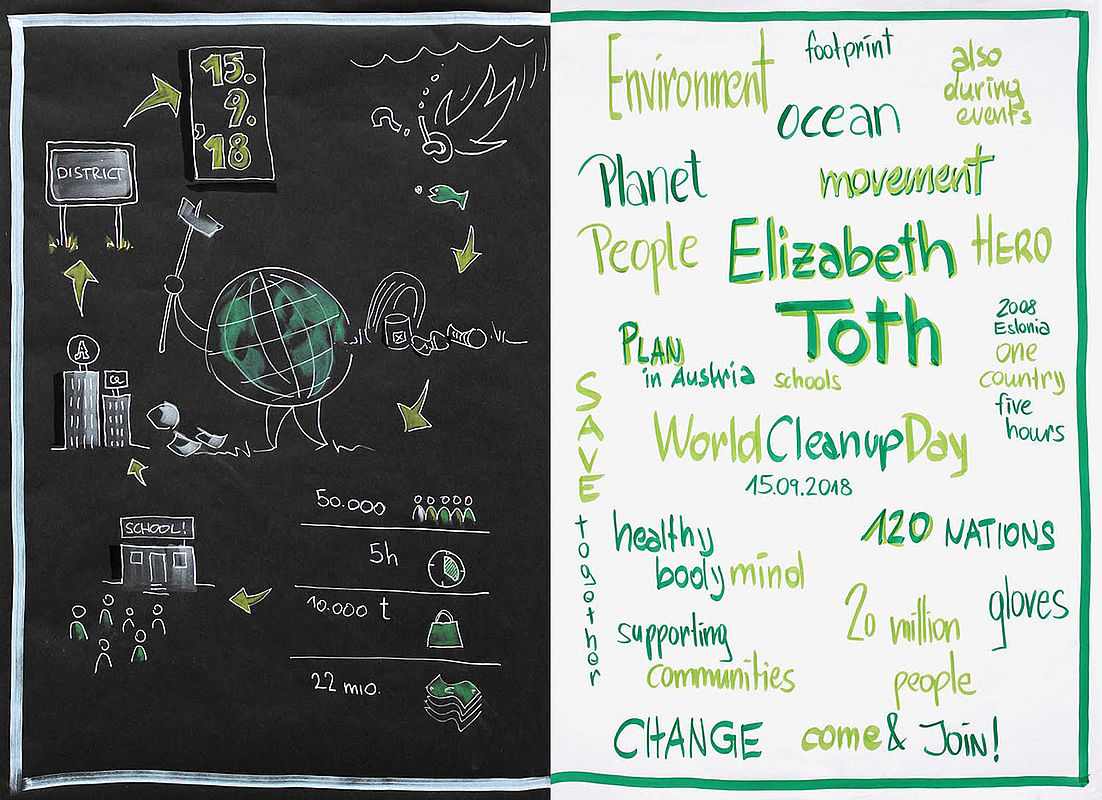 15.
9.
'18
DISTRICT
A
SCHOOL!
50.000
5h
10.000 t
22 mio.
Environment
footprint
also
during
events
ocean
Planet
movement
People
Elizabeth
Toth
HERO
2008
Estonia
one
country
five
hours
PLAN
in Austria
schools
SAVE
together
WorldCleanupDay
15.09.2018
healthy
body mind
120 NATIONS
20 million
people
gloves
supporting
communities
CHANGE
come & Join!